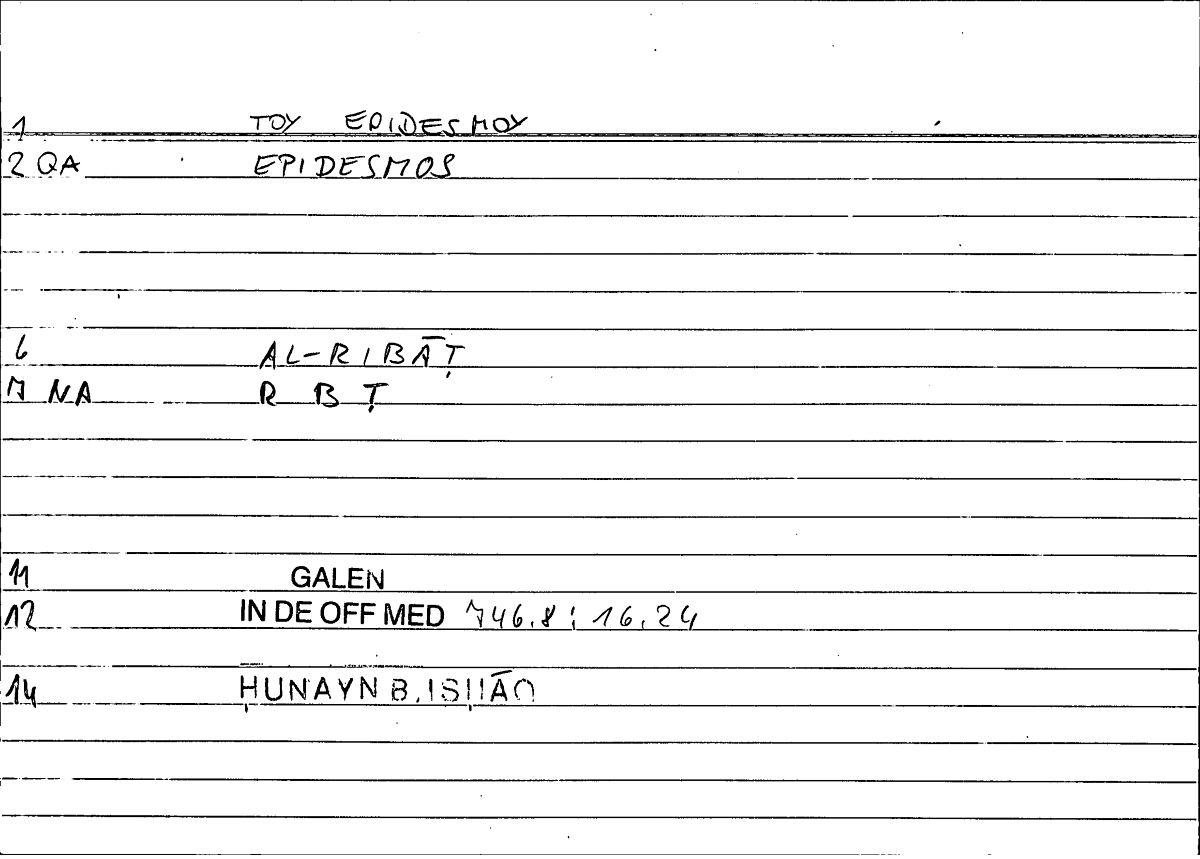 1 TOY EPIDESMOY
2 QA EPIDESMOS
6 AL-RIBĀṬ
7 NA R B Ṭ
11 GALEN
12 IN DE OFF MED 746.8 ; 16.24
14 ḤUNAYN B. ISḤĀQ